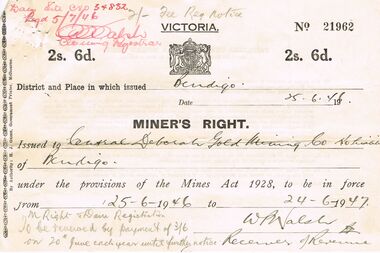 Dam Site CVP 34832
Regd 5/7/46
2/- Fee Reg Notice
VICTORIA.
No 21962
Walsh
Mining Registrar
2s. 6d.
2s. 6d.
District and Place in which issued Bendigo.
Date 25-6-46
MINER'S RIGHT.
Issued to Central Deborah Gold Mining Co No Liab
of Bendigo.
under the provisions of the Mines Act 1928, to be in force
from 25-6-1946 to 24-6-1947.
M Right & Dam Registration
to be renewed by payment of 3/6
on 20th June each year until further notice
W P Walsh
Receiver of Revenue
By Authority: Government Printer, Melbourne.